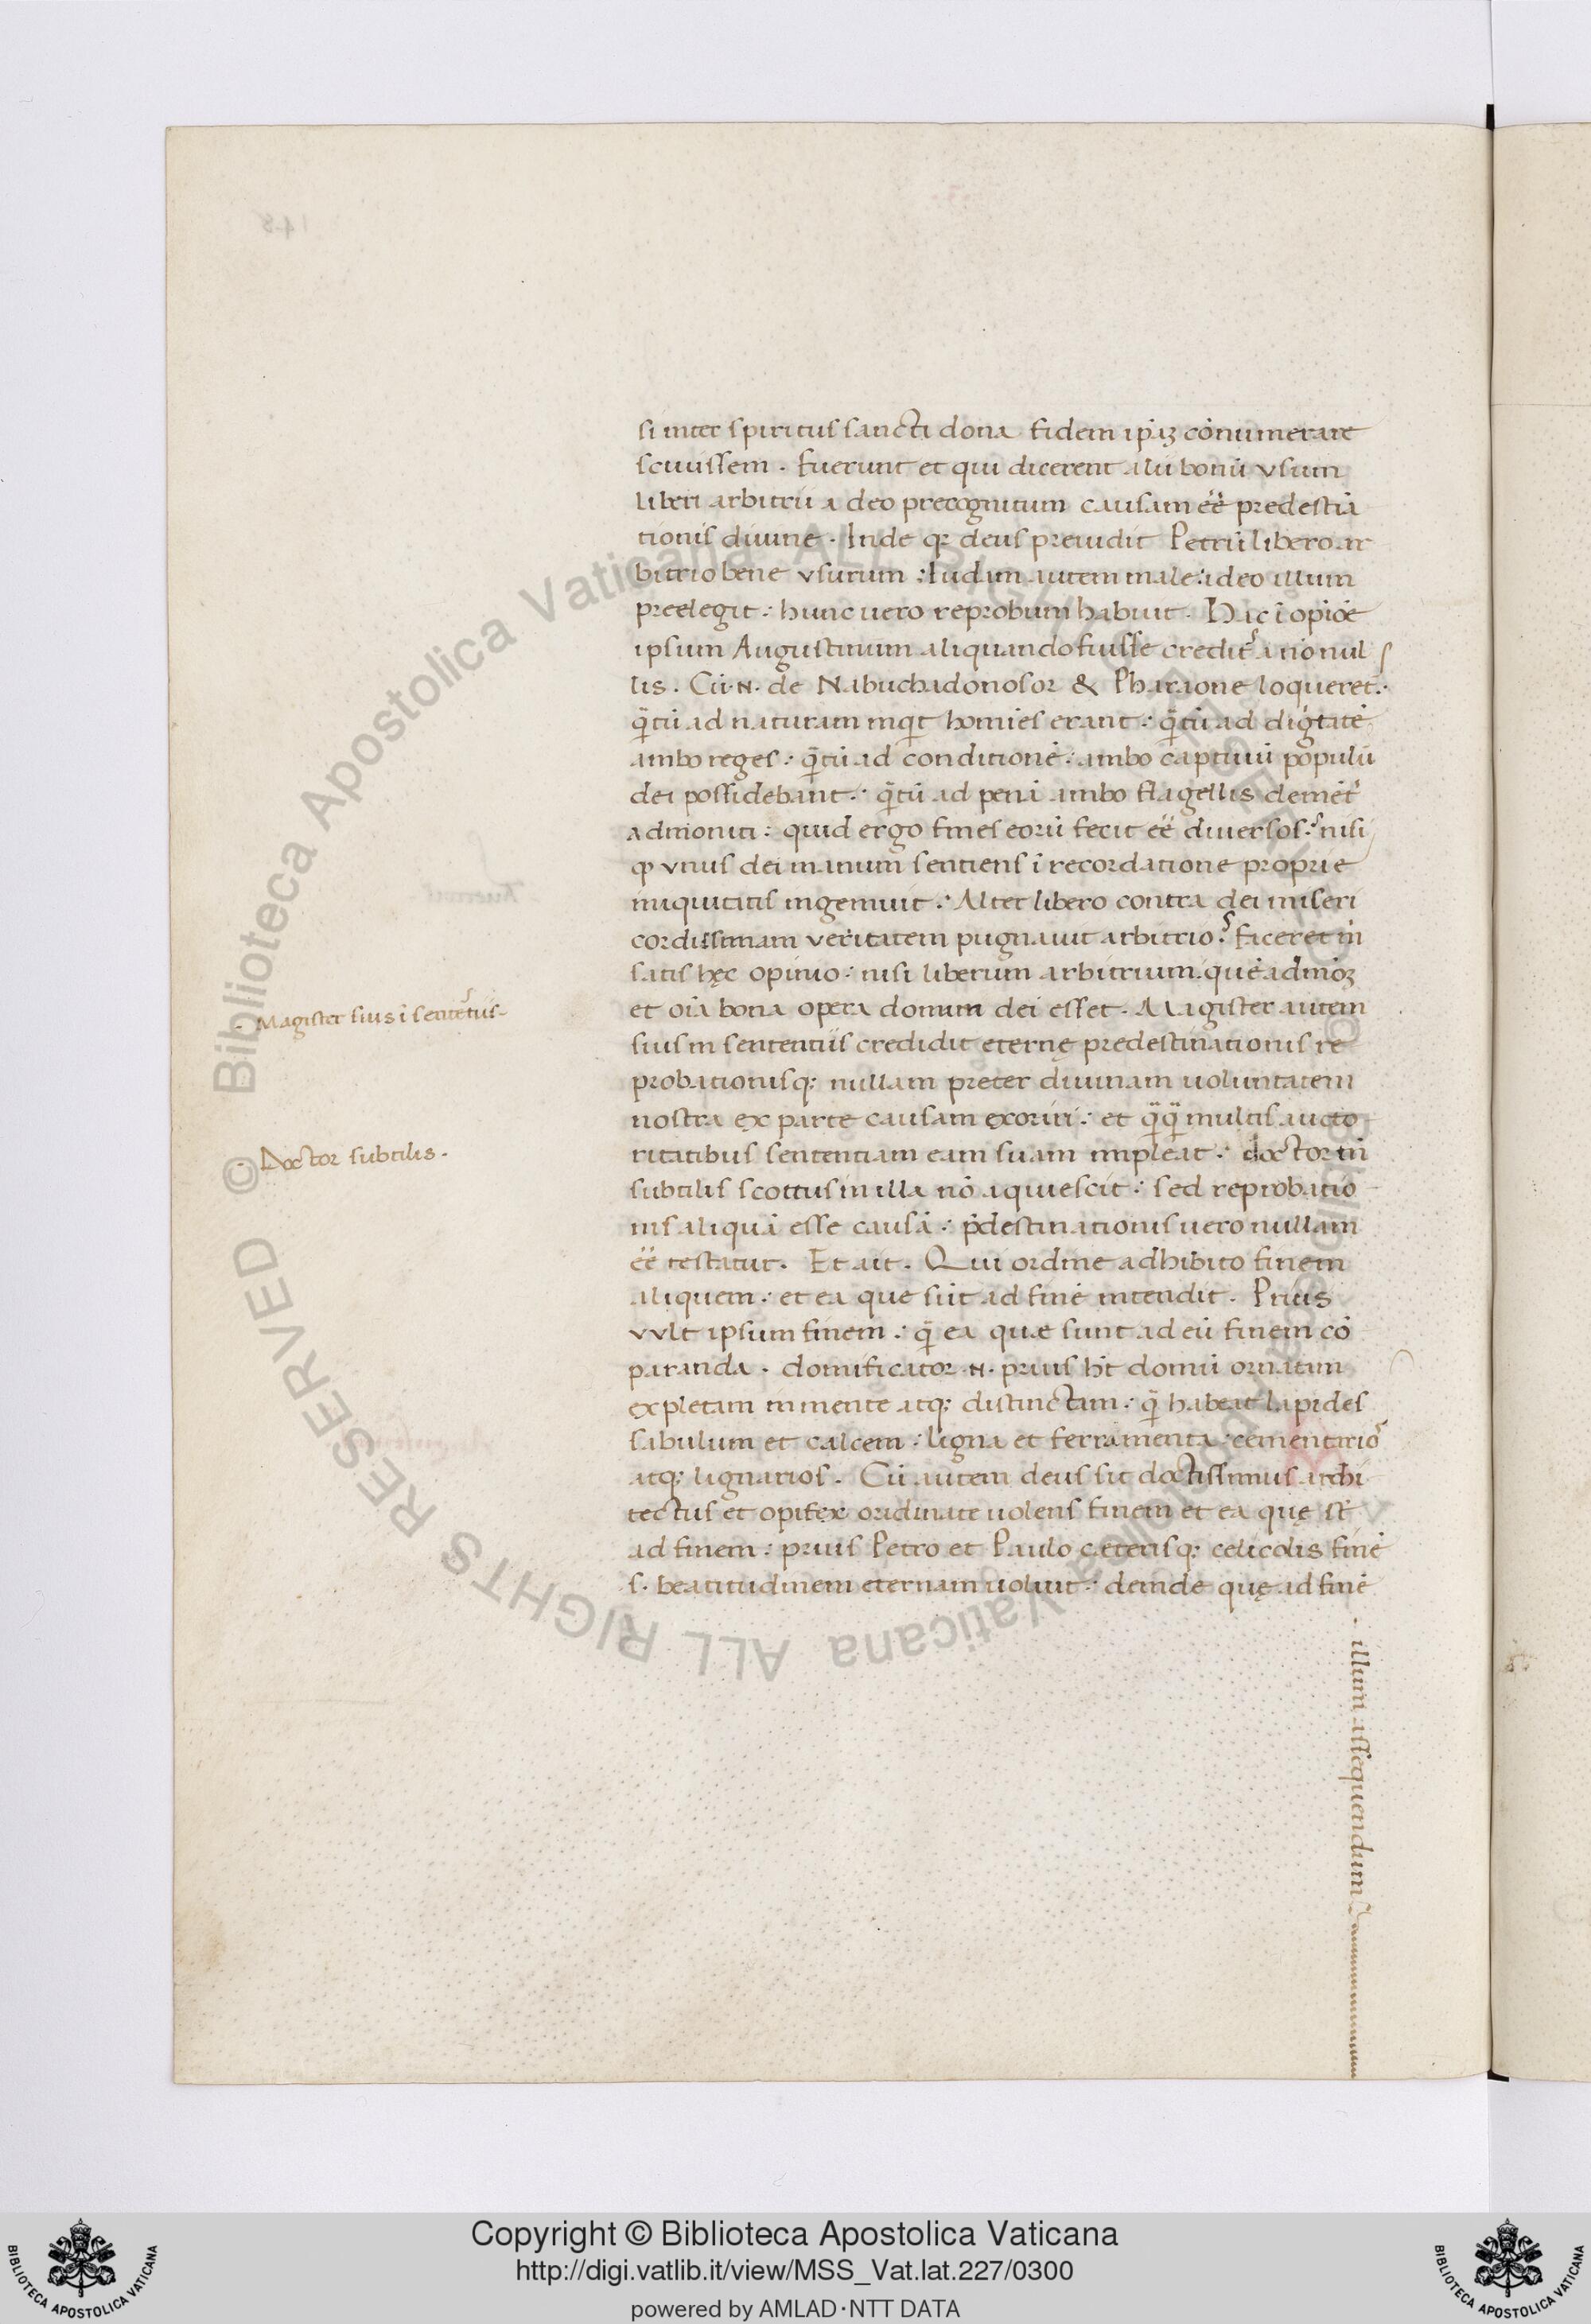 si inter spiritus sancti dona fidem ipāȝ cōnumerare
scivissem . fuerunt et qui dicerent alii bonū vsum
liberi arbitrii a deo precognitum causam eē̄ predestiā
tionis diuine . Inde qꝛ deus preuidit Petrū libero ar
bitrio bene vsurum : Iudam autem male : ideo illum
preelegit : hunc uero reprobum habuit . Hac ī opiōe
ipsum Augustinum aliquando fuisse credit̃ a nōnul
lis . Cū .n. de Nabuchadonosor & Pharaone loqueret̃ .
q̄tū ad naturam inqͥt homīes erant : q̄tū ad dīgtatē
ambo reges : q̄tū ad conditionē : ambo captiuū populū
dei possidebant : q̄tū ad penā ambo flagellis clemēt̓
admoniti : quid ergo fines eorū fecit eē̄ diuersos : nisi
ꝙ vnus dei manum sentiens ī recordatione proprie
iniquitatis ingemuit : Alter libero contra dei miseri
cordissimam veritatem pugnauit arbitrio ? faceret m̄
satis hęc opinio : nisi liberum arbitrium quēadmōȝ
et oīa bona opera donum dei esset . Magister autem
suus in sententiis credidit eternę predestinationis re
probationisqꝫ nullam preter diuinam uoluntatem
nostra ex parte causam exoriri : et q̄q̄ multis aucto
ritatibus sententiam eam suam impleat : doctor m̄
subtilis scottus in illa nō aquiescit : sed reprobatio
nis aliquā esse causā : p̄destinationis uero nullam
eē̄ testatur . Et ait . Qui ordine adhibito finem
aliquem : et ea que sūt ad finē intendit . Prius
vvlt ipsum finem : q̄ ea quæ sunt ad eū finem cō
paranda . domificator .n. prius ht̄ domū ornatam
expletam in mente atqꝫ distinctam : q̄ habeat lapides
sabulum et calcem : ligna et ferramenta : cementario᷒
atqꝫ lignarios . Cū autem deus sit doctissimus archi
tectus et opifex oridinate uolens finem et ea quę st̄
ad finem : prius Petro et Paulo ceterisqꝫ celicolis finē
.s. beatitudinem eternam uoluit : deinde quę ad finē
. illum assequendum
. Magister suus ī sentētiis .
. Doctor subtilis .
148
© Biblioteca Apostolica Vaticana ALL RIGHTS RESERVED
Copyright © Biblioteca Apostolica Vaticana
http://digi.vatlib.it/view/MSS_Vat.lat.227/0300
powered by AMLAD·NTT DATA
BIBLIOTECA APOSTOLICA VATICANA
BIBLIOTECA APOSTOLICA VATICANA